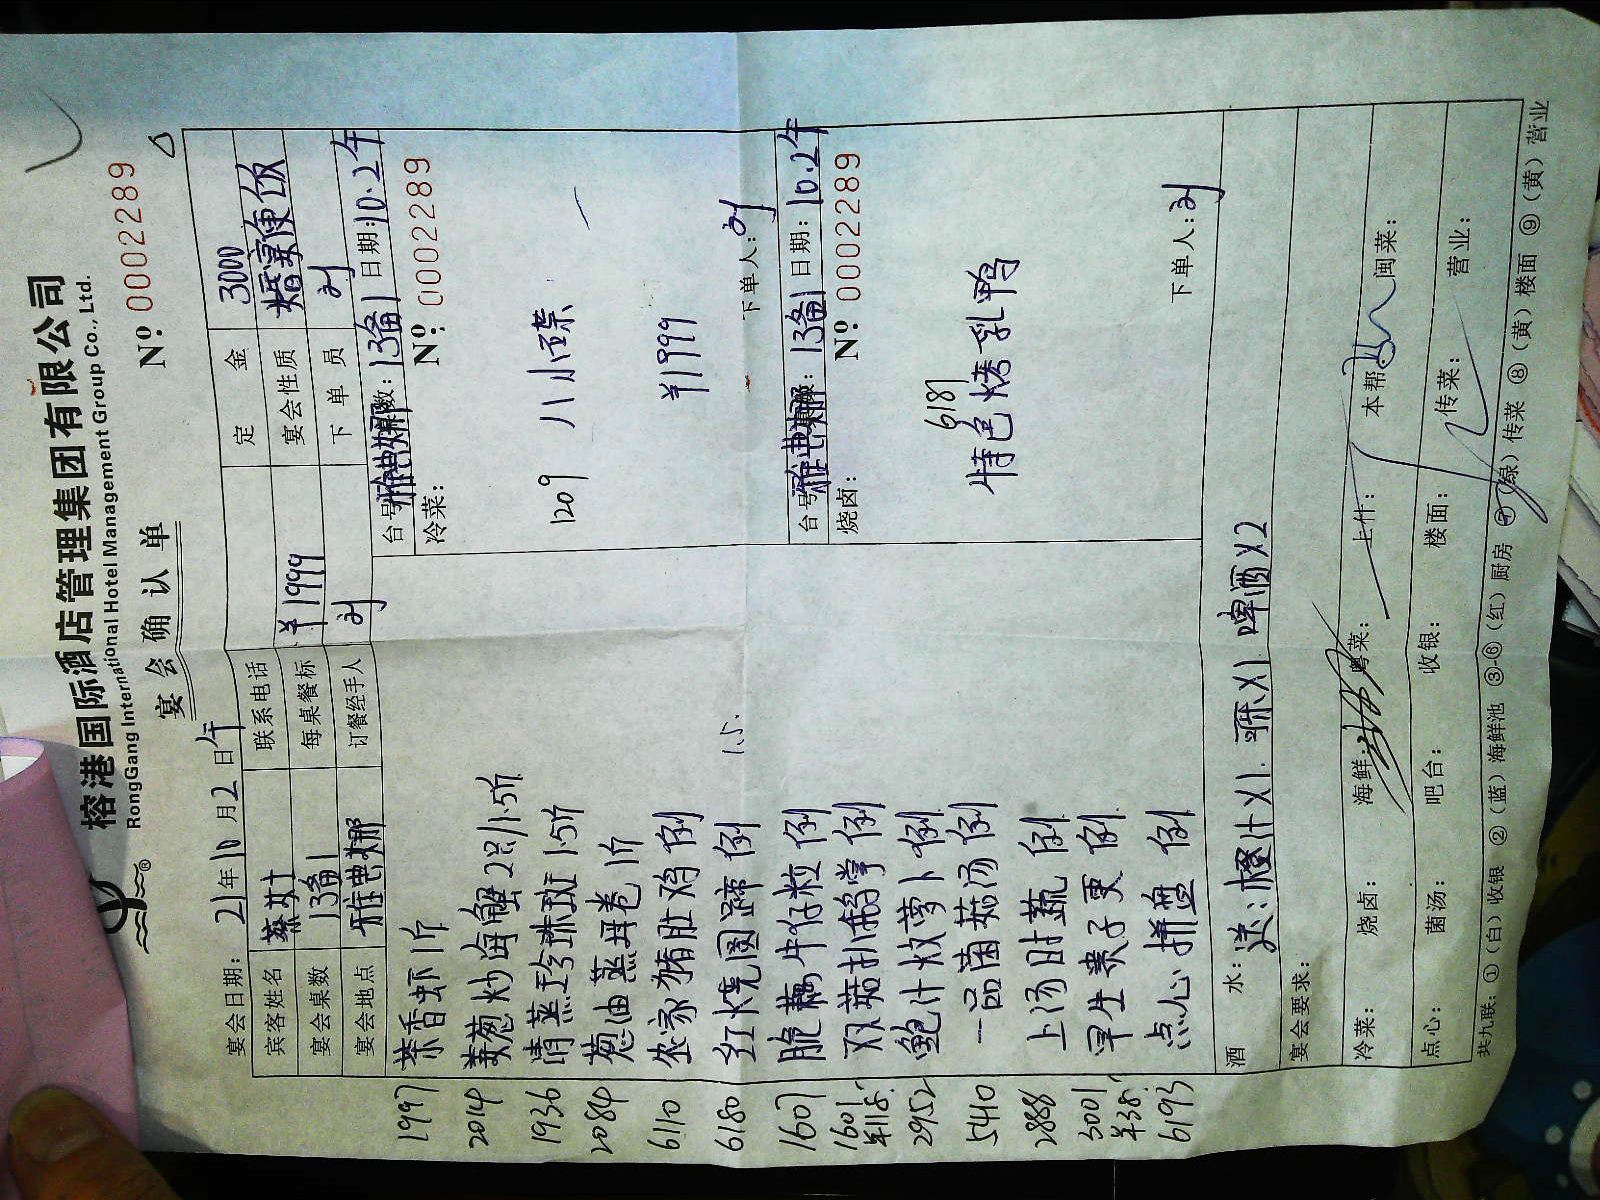 榕港国际酒店管理集团有限公司
RongGang International Hotel Management Group Co., Ltd.
宴会确认单
Nº 0002289
宴会日期：21年10月2日午
宾客姓名 蔡女士 联系电话 定金 3000
宴会桌数 13备1 每桌餐标 ¥1999 宴会性质 婚宴便饭
宴会地点 雅典娜 订餐经手人 刘 下单员 刘
1997 茶香虾1斤
2014 姜葱炒海蟹2只/1.5斤
1936 清蒸珍珠斑1.5斤
2084 葱油蒸耳卷1斤
6110 农家猪肚鸡 例
6180 红烧圆蹄 例 1.5.
1607 脆藕牛仔粒 例
1601 双菇扒鹅掌 例
2952 鲍汁炆萝卜 例
5440 一品菌菇汤 例
2888 上汤时蔬 例
3001 早生贵子更 例
6193 点心拼盘 例
台号 雅典娜 数：13备1 日期：10.2午
冷菜： Nº: 0002289
1209 八小碟
¥1999
下单人：刘
台号 雅典娜 13备1 日期：10.2午
烧卤： Nº 0002289
6181
特色烤乳鸭
下单人：刘
酒水： 送：橙汁X1. 可乐X1. 啤酒X2
宴会要求：
冷菜： 烧卤： 海鲜： 粤菜： 上什： 本帮： 闽菜：
点心： 菌汤： 吧台： 收银： 楼面： 传菜： 营业：
共九联：①（白）收银 ②（蓝）海鲜池 ③-⑥（红）厨房 ⑦（绿）传菜 ⑧（黄）楼面 ⑨（黄）营业